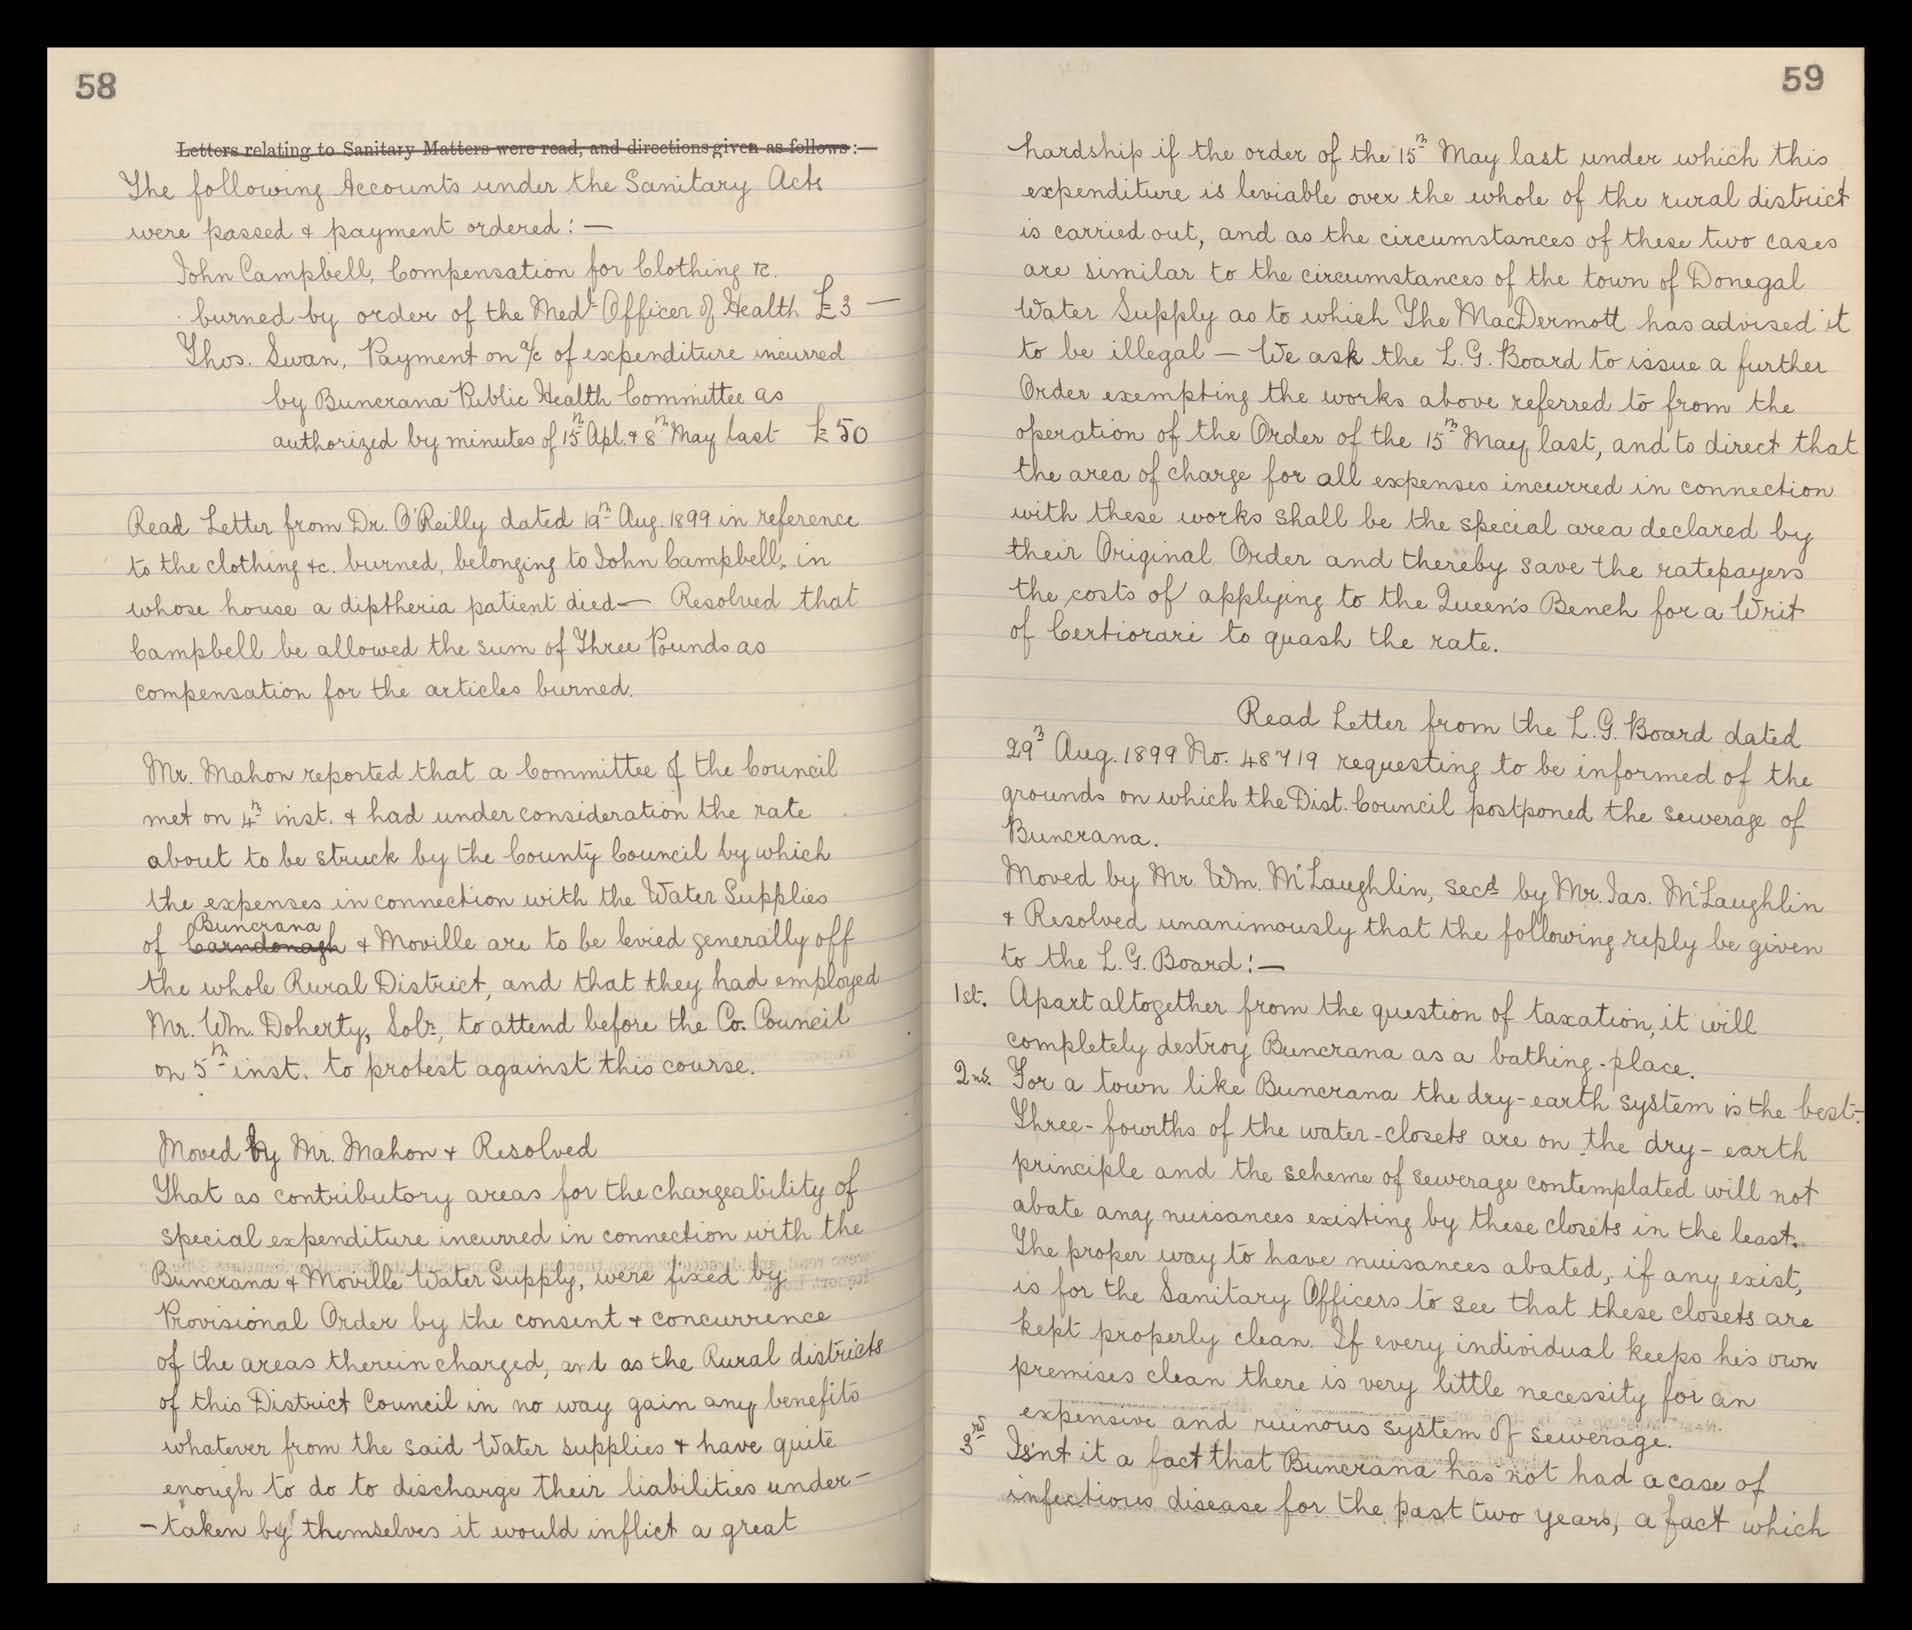 58
Letters relating to Sanitary Matters were read, and directions given as follows:—
The following Accounts under the Sanitary Acts
were passed & payment ordered: —
John Campbell, Compensation for Clothing &c.
burned by order of the Medl Officer of Health £3 —
Thos. Swan, Payment on a/c of expenditure incurred
by Buncrana Public Health Committee as
authorized by minutes of 15th Apl. & 8th May last £50
Read Letter from Dr. O'Reilly dated 19th Aug. 1899 in reference
to the clothing &c. burned, belonging to John Campbell, in
whose house a diptheria patient died — Resolved that
Campbell be allowed the sum of Three Pounds as
compensation for the articles burned.
Mr. Mahon reported that a Committee of the Council
met on 4th inst. & had under consideration the rate
about to be struck by the County Council by which
the expenses in connection with the Water Supplies
Buncrana
of Carndonagh & Moville are to be levied generally off
the whole Rural District, and that they had employed
Mr. Wm. Doherty, Solr., to attend before the Co. Council
on 5th inst. to protest against this course.
Moved by Mr. Mahon & Resolved
That as contributory areas for the chargeability of
special expenditure incurred in connection with the
Buncrana & Moville Water Supply, were fixed by
Provisional Order by the consent & concurrence
of the areas therein charged, and as the Rural districts
of this District Council in no way gain any benefits
whatever from the said Water supplies & have quite
enough to do to discharge their liabilities under-
-taken by themselves it would inflict a great
59
hardship if the order of the 15th May last under which this
expenditure is leviable over the whole of the rural district
is carried out, and as the circumstances of these two cases
are similar to the circumstances of the town of Donegal
Water Supply as to which The MacDermott has advised it
to be illegal — We ask the L.G. Board to issue a further
Order exempting the works above referred to from the
operation of the Order of the 15th May last, and to direct that
the area of charge for all expenses incurred in connection
with these works shall be the special area declared by
their Original Order and thereby save the ratepayers
the costs of applying to the Queen's Bench for a Writ
of Certiorari to quash the rate.
Read Letter from the L.G. Board dated
29th Aug. 1899 No. 48719 requesting to be informed of the
grounds on which the Dist. Council postponed the sewerage of
Buncrana.
Moved by Mr Wm. McLaughlin, secd by Mr. Jas. McLaughlin
& Resolved unanimously that the following reply be given
to the L.G. Board:—
1st. Apart altogether from the question of taxation, it will
completely destroy Buncrana as a bathing-place.
2nd. For a town like Buncrana the dry-earth system is the best.
Three-fourths of the water-closets are on the dry-earth
principle and the scheme of sewerage contemplated will not
abate any nuisances existing by these closets in the least.
The proper way to have nuisances abated, if any exist,
is for the Sanitary Officers to see that these closets are
kept properly clean. If every individual keeps his own
premises clean there is very little necessity for an
expensive and ruinous system of sewerage.
3rd Isn't it a fact that Buncrana has not had a case of
infectious disease for the past two years, a fact which